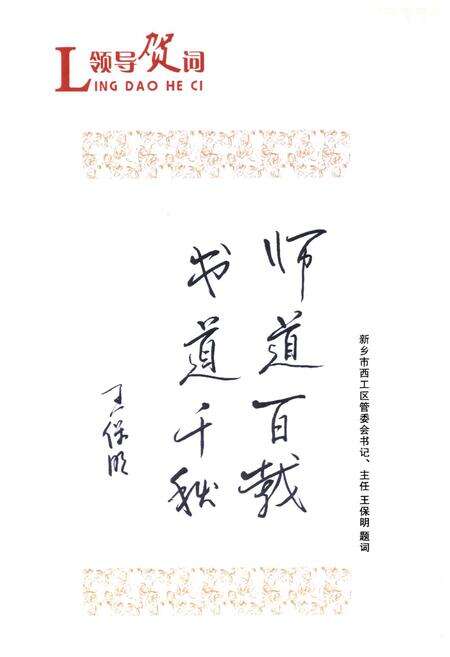 领导贺词
LING DAO HE CI
师道百载
书道千秋
王保明
新乡市西工区管委会书记、主任 王保明 题词